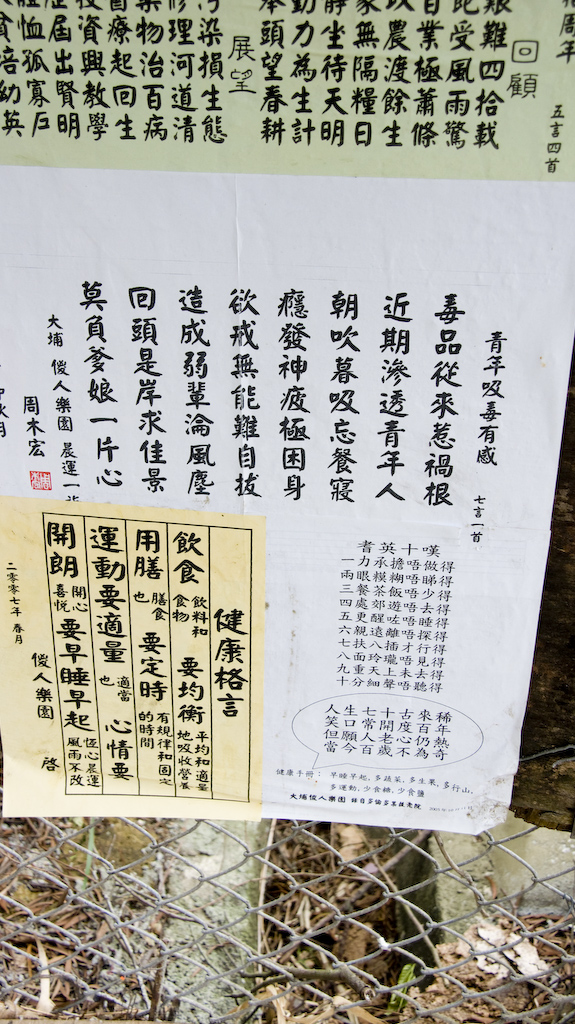 周年
五言四首
回顧
艱難四拾載
受風雨驚
百業極蕭條
以農渡餘生
家無隔糧日
靜坐待天明
動力為生計
頭望春耕
展望
污染損生態
修理河道清
藥物治百病
療起回生
投資興教學
歷屆出賢明
體恤孤寡戶
培幼英
青年吸毒有感
七言一首
毒品從來惹禍根
近期滲透青年人
朝吹暮吸忘餐寢
癮發神疲極困身
欲戒無能難自拔
造成弱輩淪風塵
回頭是岸求佳景
莫負爹娘一片心
大埔 傻人樂園 晨運一
周木宏
秋月
耆英十嘆
一力承擔唔做得
兩眼模糊唔睇得
三餐茶飯唔少得
四處郊遊唔去得
五更醒咗唔睡得
六親遠離唔探得
七扶八插才行得
八面玲瓏唔見得
九重天上未去得
十分細聲唔聽得
人生七十古來稀
笑口常開度百年
但願人老心仍熱
當今百歲不為奇
健康手冊: 早睡早起, 多蔬菜, 多生果, 多行山,
多運動, 少食糖, 少食鹽
大埔傻人樂園 錄自多倫多孟嘗安老院
健康格言
飲食 飲料和食物 要均衡 平均和適量地吸收營養
用膳 膳食也 要定時 有規律和固定的時間
運動要適量 適當也 心情要
開朗 開心喜悅 要早睡早起 恆心晨運風雨不改
傻人樂園 啓
二零零七年 春月